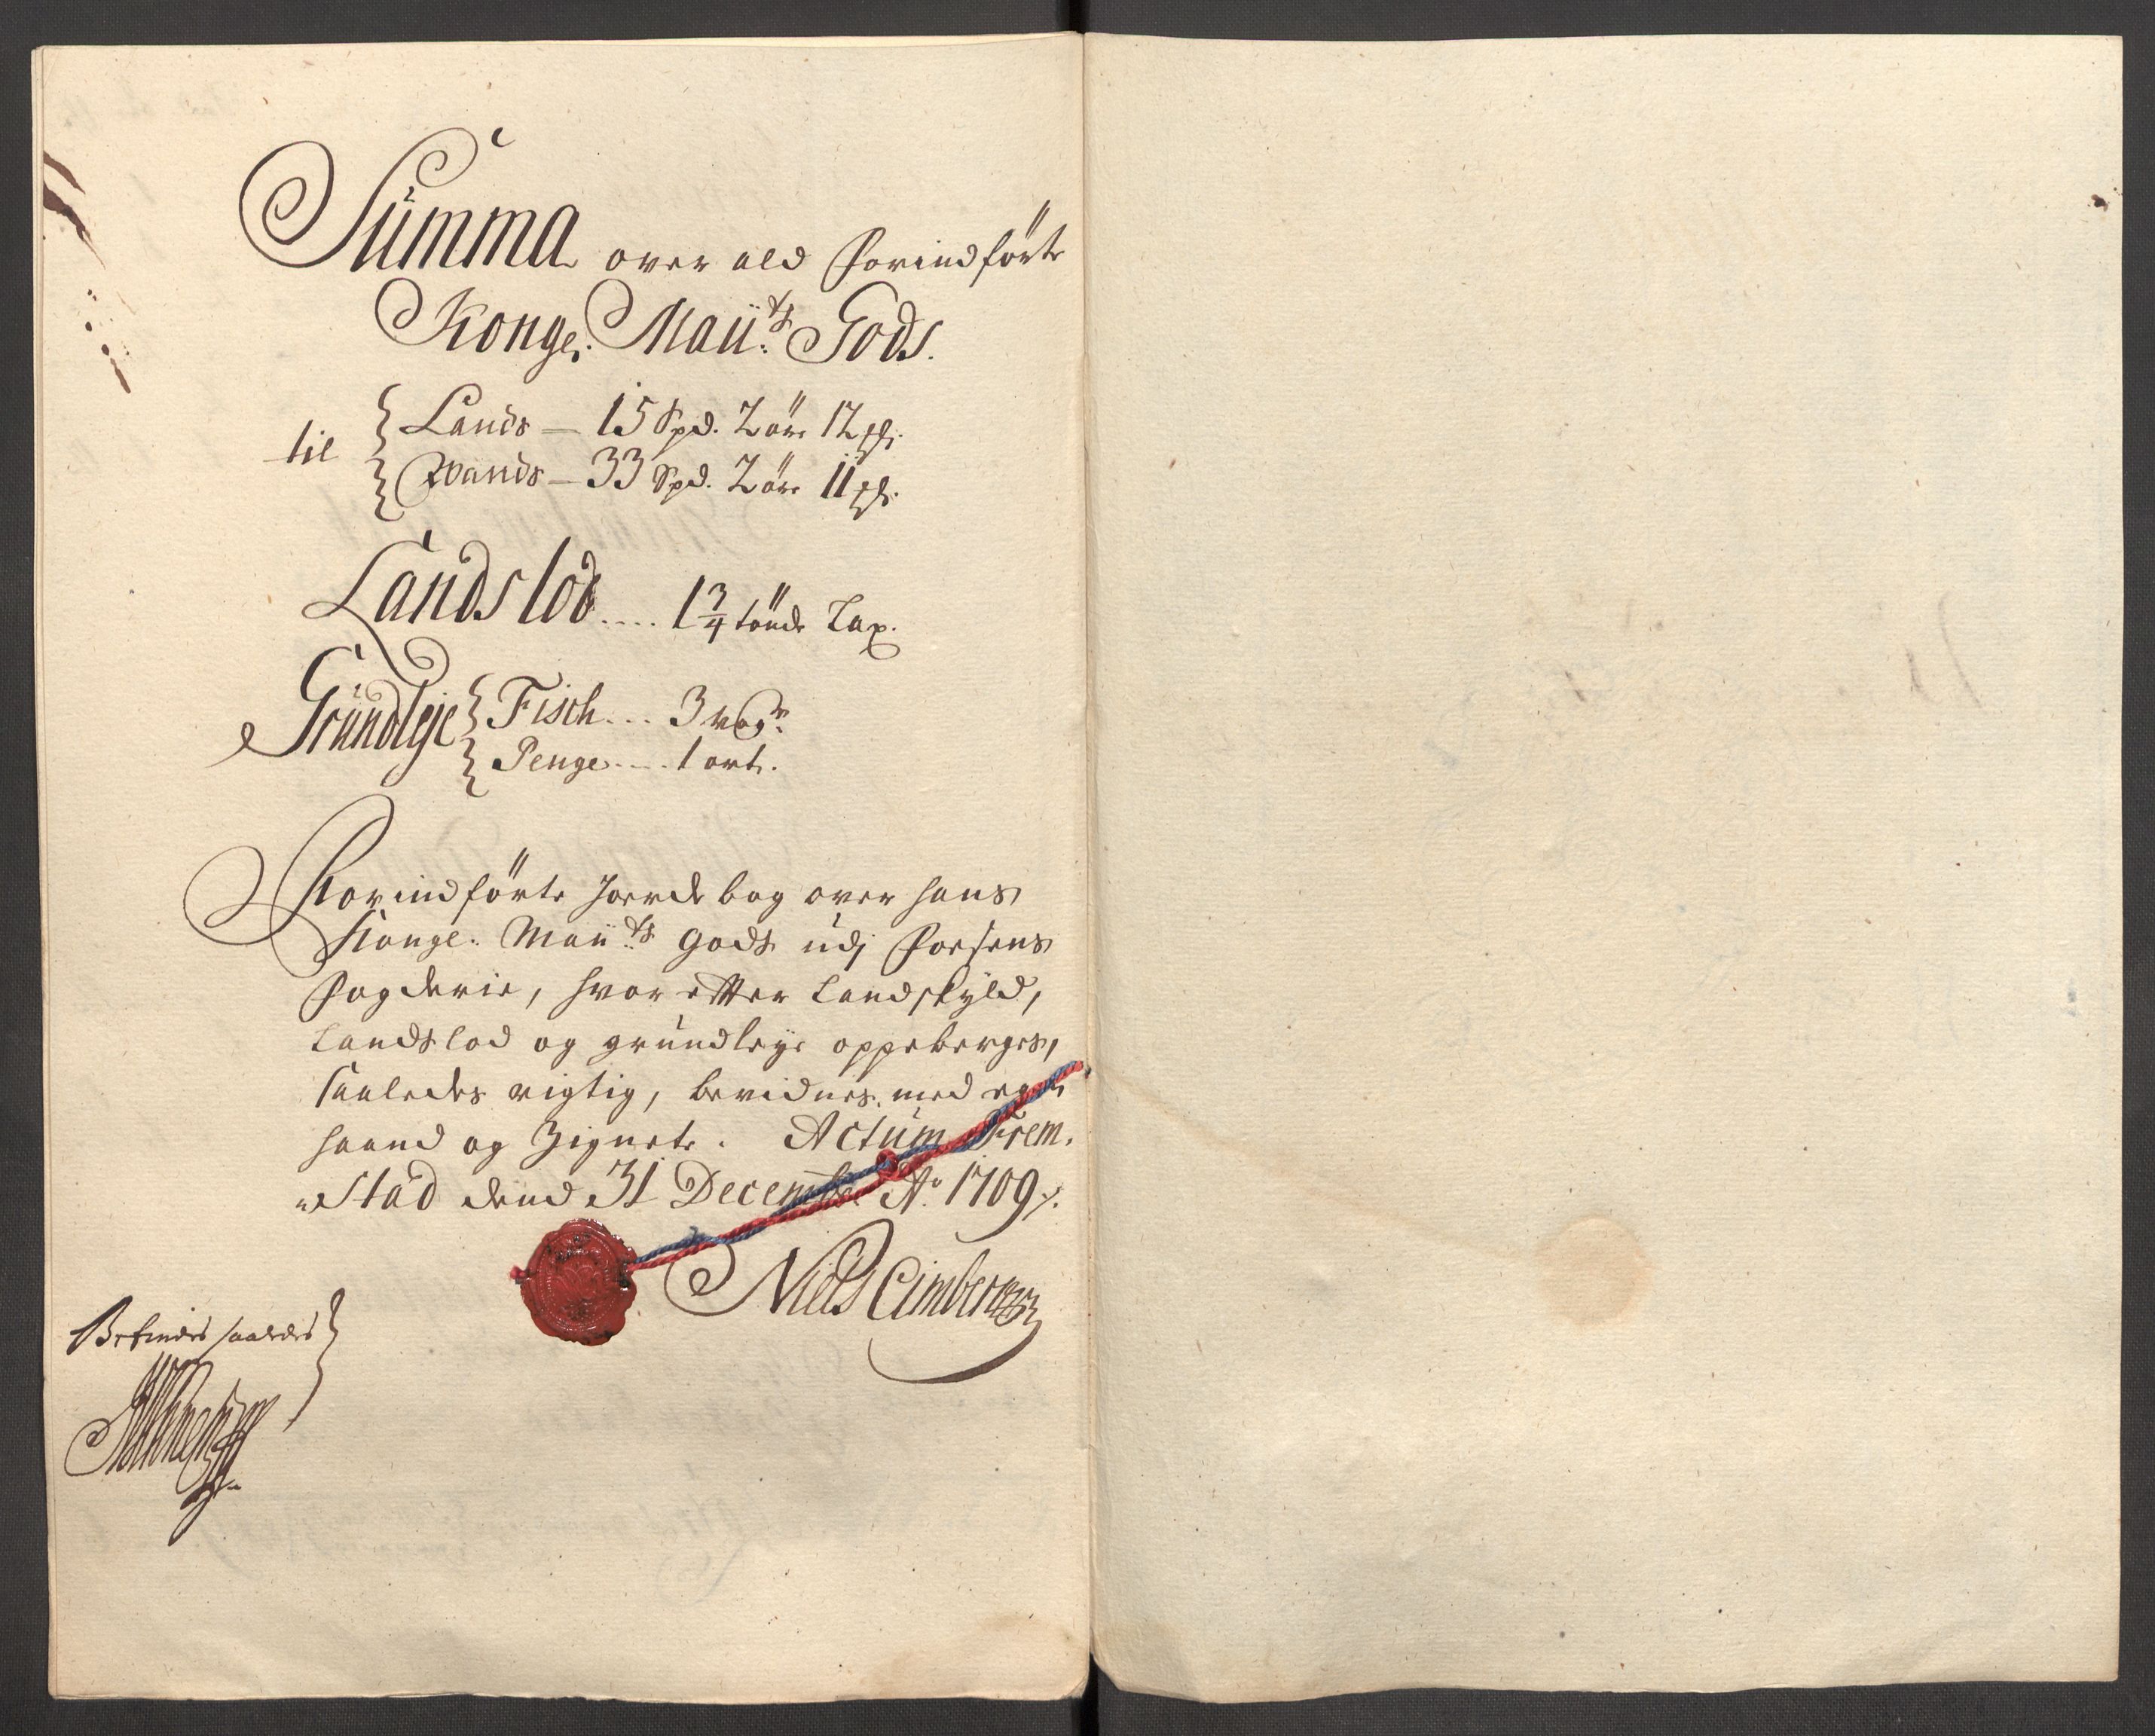 Summa over ald Forindførte
Kongl: Maii:ts Gods.
til { Lands — 15 Spd. 2 öre 12 ſl:
{ Wands — 33 Spd. 2 öre 11 ſl:
Landslod .... 1 3/4 tönde Lax.
Gründleje { Fisch ... 3 vog:r
{ Penge .... 1 ort.
Forindförte Jorde bog over hans
Kongl: Maii:ts Gods udj Fosens
Fogderie, hvor effter Landskyld,
Landslod og grundleye oppeberges,
saaledes rigtig, bevidnes med egen
haand og Zignete. Actum Frem-
stad dend 31 December Ao 1709.
Niels Cimber
Befindes saaledes }